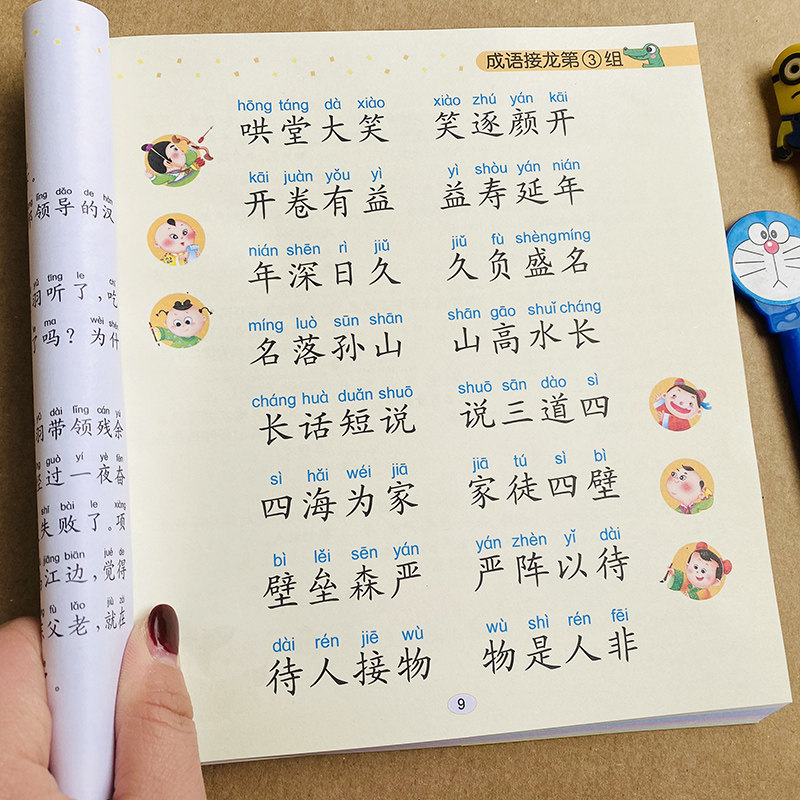 成语接龙第③组
hōng táng dà xiào xiào zhú yán kāi
哄堂大笑 笑逐颜开
kāi juàn yǒu yì yì shòu yán nián
开卷有益 益寿延年
nián shēn rì jiǔ jiǔ fù shèng míng
年深日久 久负盛名
míng luò sūn shān shān gāo shuǐ cháng
名落孙山 山高水长
cháng huà duǎn shuō shuō sān dào sì
长话短说 说三道四
sì hǎi wéi jiā jiā tú sì bì
四海为家 家徒四壁
bì lěi sēn yán yán zhèn yǐ dài
壁垒森严 严阵以待
dài rén jiē wù wù shì rén fēi
待人接物 物是人非
9
lǐng dǎo de hàn
领导的汉
tīng le
听了，吃
ma wèi shén
吗？为什
dài lǐng cán yú
带领残余
guò yí yè fèn
过一夜奋
shī bài le xiàng
失败了。项
jiāng biān jué de
江边，觉得
fù lǎo jiù zài
父老，就在